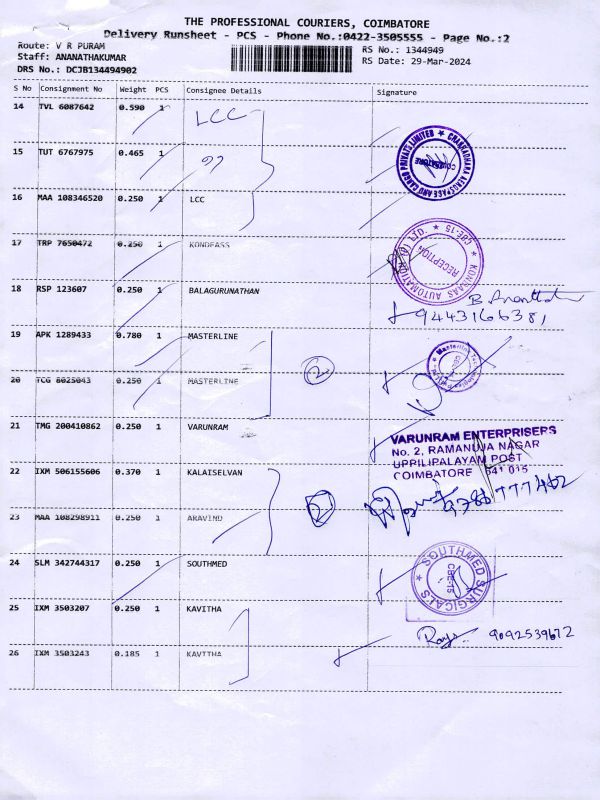 THE PROFESSIONAL COURIERS, COIMBATORE
Delivery Runsheet - PCS - Phone No.:0422-3505555 - Page No.:2
Route: V R PURAM
Staff: ANANATHAKUMAR
DRS No.: DCJB134494902
RS No.: 1344949
RS Date: 29-Mar-2024
S No Consignment No Weight PCS Consignee Details Signature
14 TVL 6087642 0.590 1 LCC
15 TUT 6767975 0.465 1 "
CHAKRADHARA AEROSPACE AND CARGO PRIVATE LIMITED ★ COIMBATORE
16 MAA 108346520 0.250 1 LCC
17 TRP 7650472 0.250 1 KONDFASS
★ KONAAS AUTOMATION (P) LTD. ★ CBE-15
RECEPTION
18 RSP 123607 0.250 1 BALAGURUNATHAN
9443166381
19 APK 1289433 0.780 1 MASTERLINE
2
20 TCG 8025043 0.250 1 MASTERLINE
21 TMG 200410862 0.250 1 VARUNRAM
VARUNRAM ENTERPRISERS
No. 2, RAMANUJA NAGAR
UPPILIPALAYAM POST
COIMBATORE 641 015
22 IXM 506155606 0.370 1 KALAISELVAN
2
9786777462
23 MAA 108298911 0.250 1 ARAVIND
24 SLM 342744317 0.250 1 SOUTHMED
★ SOUTHMED SURGICALS ★
CBE-15
25 IXM 3503207 0.250 1 KAVITHA
9092539672
26 IXM 3503243 0.185 1 KAVITHA